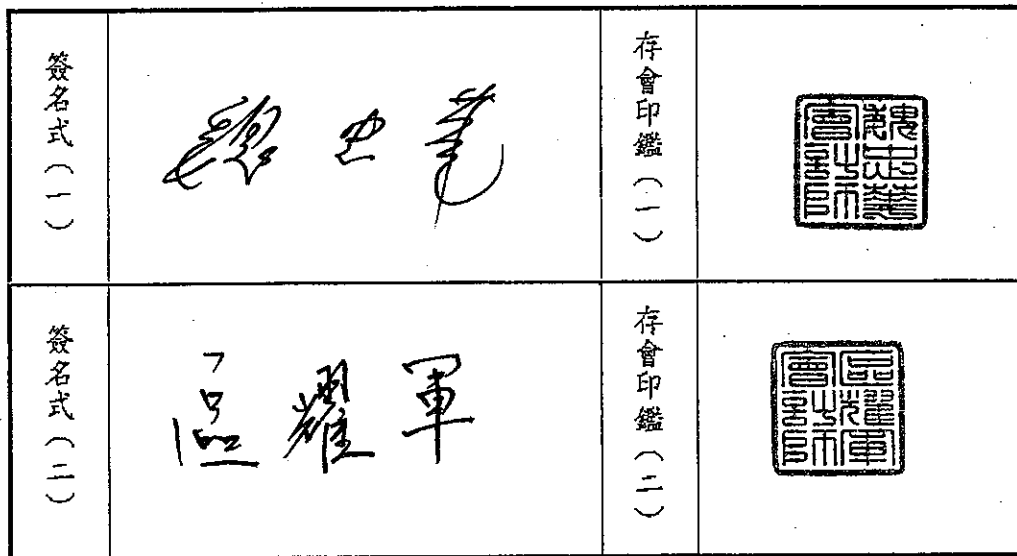 簽名式（一）
魏忠華
存會印鑑（一）
魏忠華會計師
簽名式（二）
區耀軍
存會印鑑（二）
區耀軍會計師